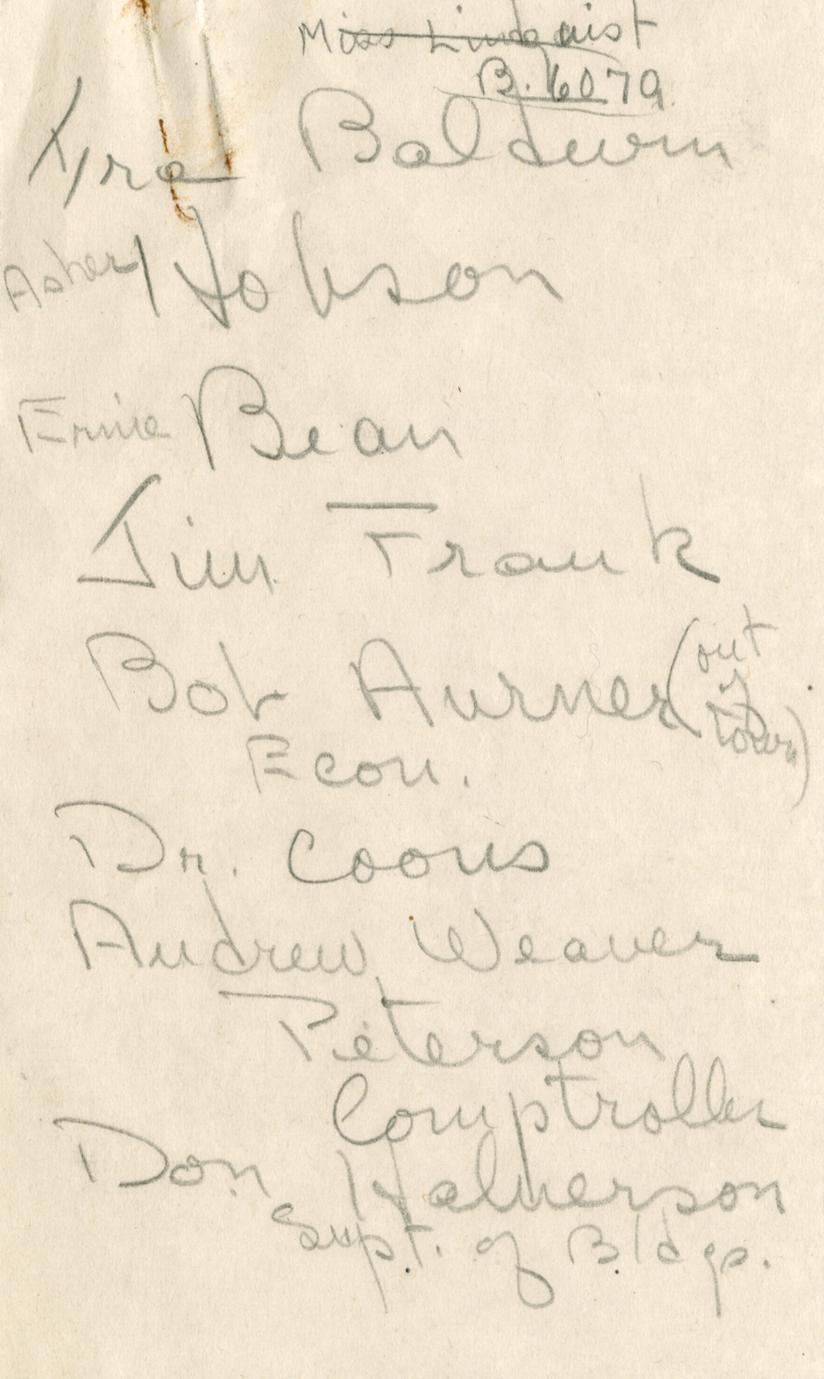 Miss Lindquist
B. 6079
Ira Baldwin
Asher Hobson
Ernie Bean
Jim Frank
Bob Aurner (out
of
town)
Econ.
Dr. Coons
Andrew Weaver
Peterson
Comptroller
Don Halverson
Supt. of Bldgs.